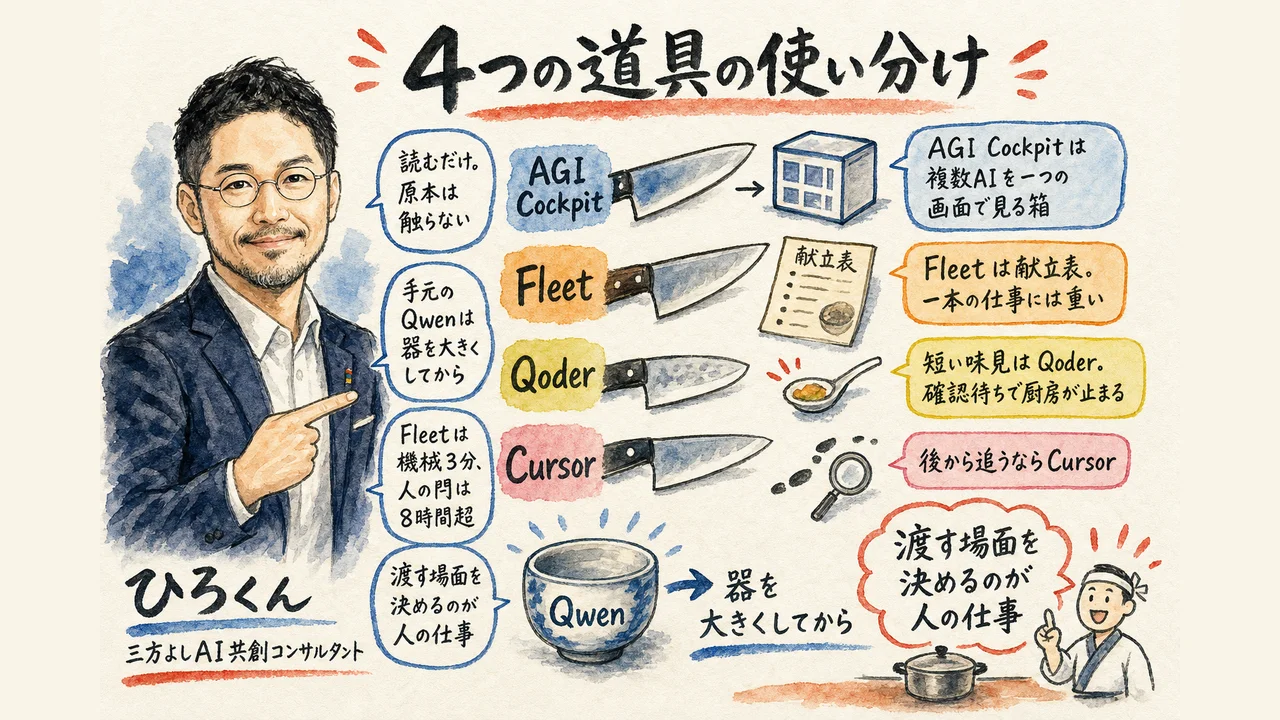 4つの道具の使い分け
読むだけ。
原本は
触らない
手元の
Qwenは
器を大きく
してから
Fleetは
機械3分、
人の閂は
8時間超
渡す場面を
決めるのが
人の仕事
ひろくん
三方よしAI共創コンサルタント
AGI
Cockpit
AGI Cockpitは
複数AIを一つの
画面で見る箱
Fleet
献立表
Fleetは献立表。
一本の仕事には重い
Qoder
短い味見はQoder。
確認待ちで厨房が止まる
Cursor
後から追うならCursor
Qwen
器を
大きくしてから
渡す場面を
決めるのが
人の仕事